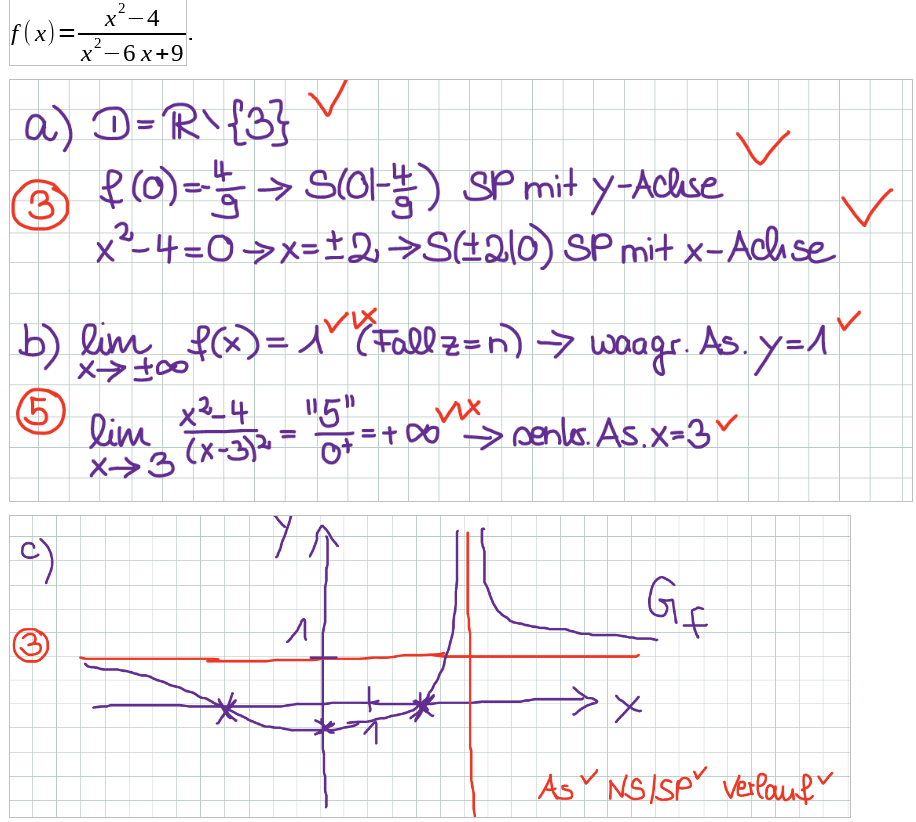 f(x)=(x²−4)/(x²−6x+9).
a) D = ℝ∖{3} ✓
③ f(0)=-4/9 → S(0|-4/9) SP mit y-Achse ✓
x²-4=0 → x=±2 → S(±2|0) SP mit x-Achse ✓
b) lim x→±∞ f(x) = 1 ✓ (Fall z=n) → waagr. As. y=1 ✓
⑤ lim x→3 (x²-4)/(x-3)² = "5"/0⁺ = +∞ ✓ → senkr. As. x=3 ✓
c) y
1 G_f
③
x
1
As ✓ NS/SP ✓ Verlauf ✓